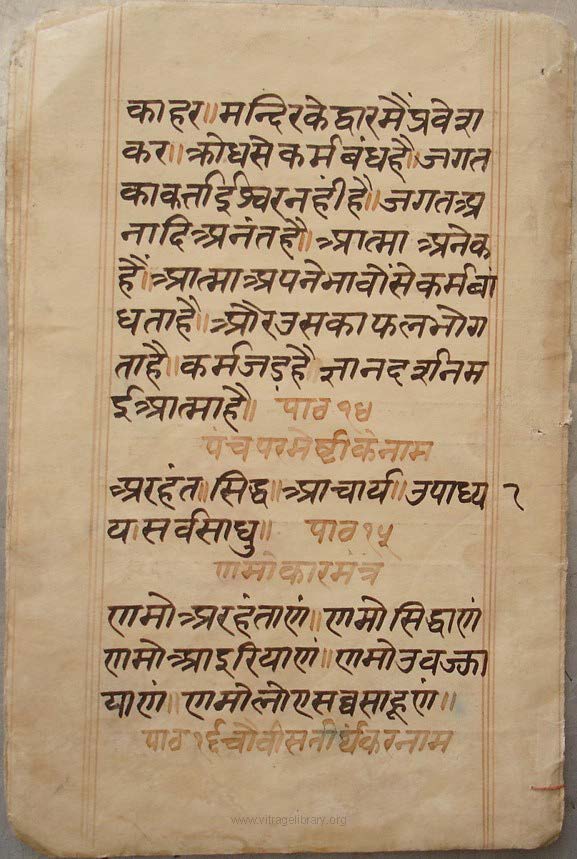 का हर॥ मन्दिर के द्वांर मैं प्रवेश
कर॥ क्रोध से कर्म बंध है॥ जगत
का कर्ता ईश्वर नहीं है॥ जगत अ
नादि अनंत है॥ आत्मा अनेक
हैं॥ आत्मा अपने भावों से कर्म बां
धता है॥ और उसका फल भोग
ता है॥ कर्म जड़ है ज्ञान दर्शन म
ई आत्मा है॥ पाठ १४
पंच परमेष्टी के नाम
अरहंत॥ सिद्ध॥ आचार्य॥ उपाध्य १
य। सर्व साधु॥ पाठ १५
णमोकार मंत्र
णमो अरहंताणं॥ णमो सिद्धाणं
णमो आइरियाणं॥ णमो उवज्झा
याणं॥ णमो लोए सव्व साहूणं॥
पाठ १६ चौवीस तीर्थंकर नाम
www.vitragelibrary.org